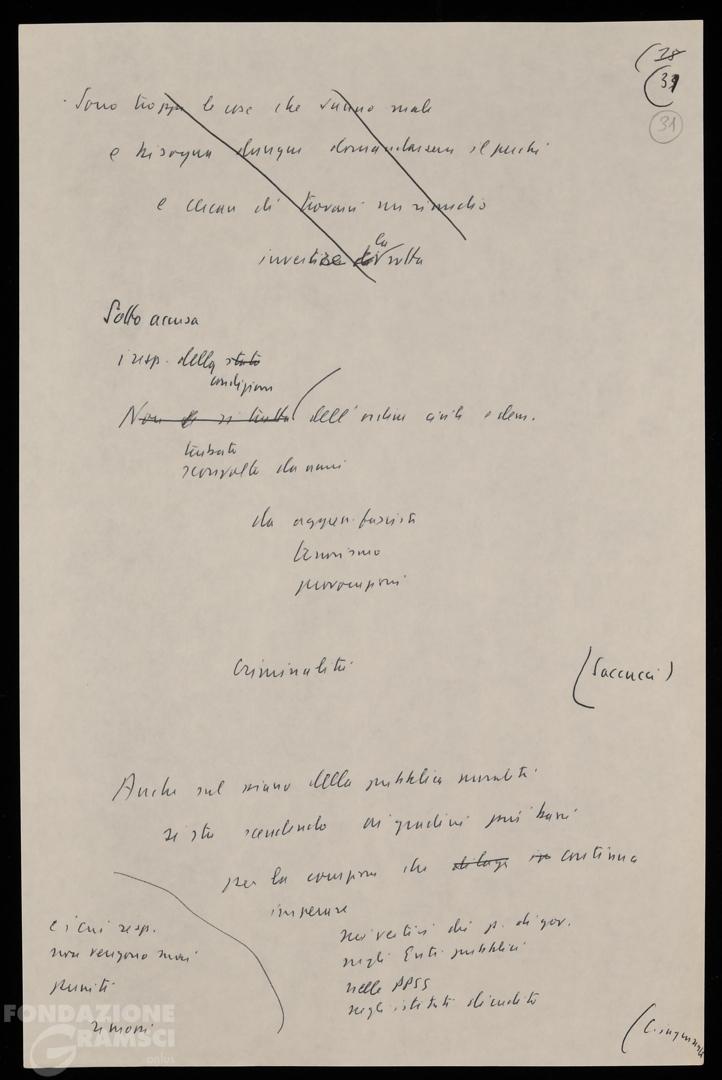 (28
(31
31
Sono troppe le cose che vanno male
e bisogna dunque domandarsene il perché
e cercare di trovarvi un rimedio
invertire la rotta
Sotto accusa
i resp. della stato
condizioni
Non si tratta dell'ordine civile e dem.
turbato
sconvolto da anni
da aggres. fascista
terrorismo
provocazioni
Criminalità
(Saccucci)
Anche sul piano della pubblica moralità
si sta scendendo ai gradini più bassi
per la corruzione che dilaga continua
imperare
e i cui resp.
non vengono mai
puniti
rimossi
nei vertici dei p. di gov.
negli Enti pubblici
nelle PPSS
negli istituti di credito
FONDAZIONE
GRAMSCI
onlus